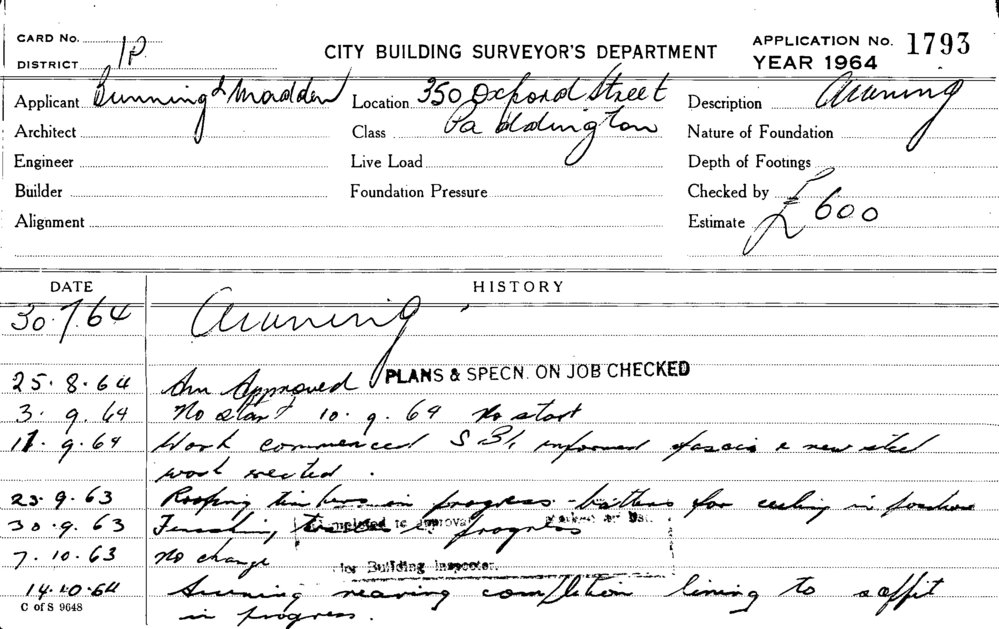 CARD No.
DISTRICT 1P.
CITY BUILDING SURVEYOR'S DEPARTMENT
APPLICATION No. 1793
YEAR 1964
Applicant Bunning & Madden Location 350 Oxford Street Description Awning
Architect Class Paddington Nature of Foundation
Engineer Live Load Depth of Footings
Builder Foundation Pressure Checked by
Alignment Estimate £600
DATE HISTORY
30.7.64 Awning
25.8.64 Approved PLANS & SPECN. ON JOB CHECKED
3.9.64 No start 10.9.64 No start
11.9.64 Work commenced informed fascia & new steel
work erected.
23.9.63 Roofing timbers in progress - battens for ceiling in
30.9.63 Finishing in progress
Completed to approval
7.10.63 No change
for Building Inspector.
14.10.64 Awning nearing completion lining to soffit
C of S 9648 in progress.